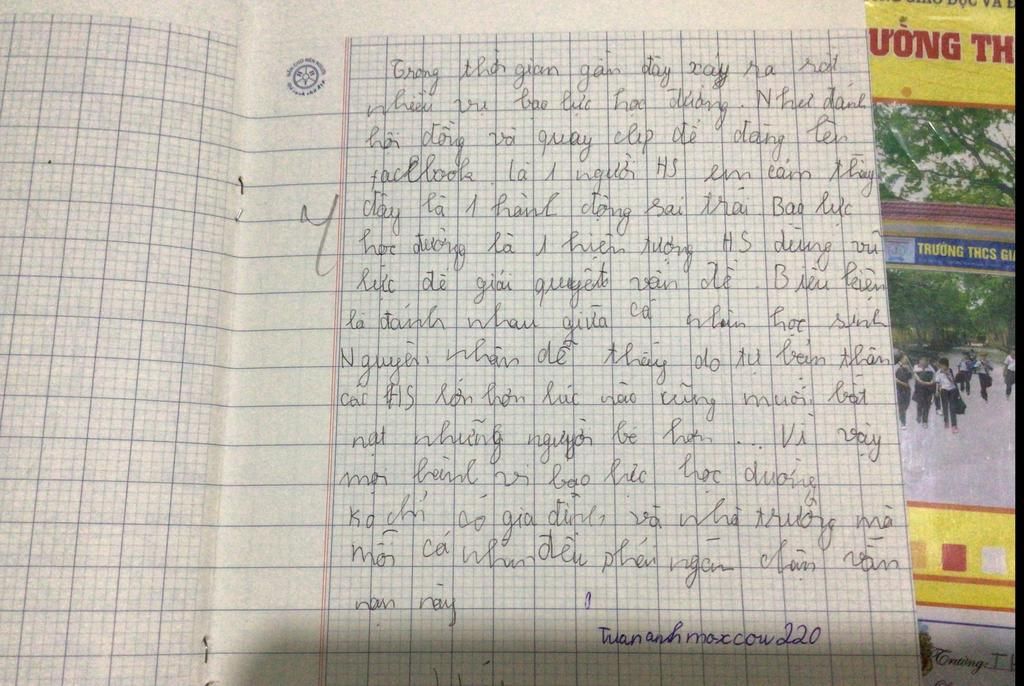 Trong thời gian gần đây xảy ra rất
nhiều vụ bạo lực học đường. Như đánh
hội đồng và quay clip để đăng lên
facebook. Là 1 người HS em cảm thấy
đây là 1 hành động sai trái. Bạo lực
học đường là 1 hiện tượng HS dùng vũ
lực để giải quyết vấn đề. Biểu hiện
là đánh nhau giữa cá nhân học sinh
Nguyên nhân dễ thấy do từ bản thân
các HS lớn hơn lúc nào cũng muốn bắt
nạt những người bé hơn... Vì vậy
mọi hành vi bạo lực học đường
ko chỉ có gia đình và nhà trường mà
mỗi cá nhân đều phải ngăn chặn vấn
nạn này
tuananhmoxcow220
GIÁO DỤC VÀ Đ
ƯỜNG TH
TRƯỜNG THCS GI
Trường: T